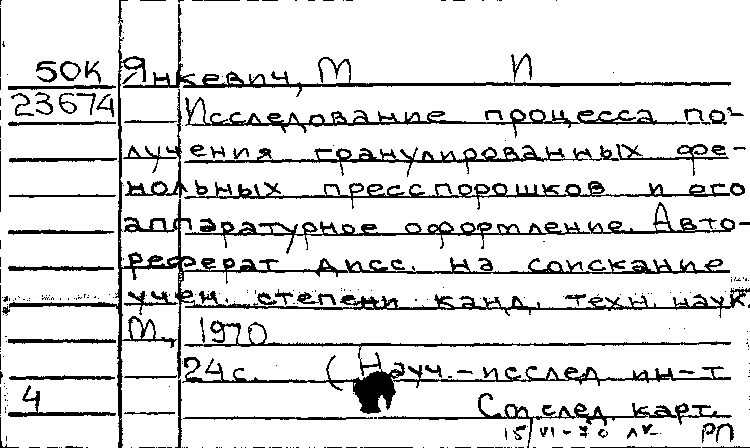 50К Янкевич, М П
23674 Исследование процесса по-
лучения гранулированных фе-
нольных пресспорошков и его
аппаратурное оформление. Авто-
реферат дисс. на соискание
учен. степени канд. техн. наук.
М., 1970
24 с. (Науч.-исслед ин-т
4 См. след. карт.
15/VI-70 РП